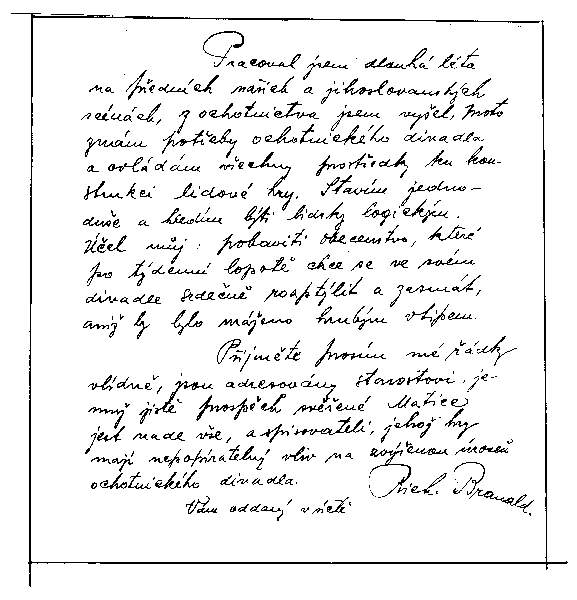 Pracoval jsem dlouhá léta
na předních našich a jihoslovanských
scénách, z ochotnictva jsem vyšel, proto
znám potřeby ochotnického divadla
a ovládám všechny prostředky ku kon-
strukci lidové hry. Stavím jedno-
duše a hledím býti lidsky logickým.
Účel můj: pobaviti obecenstvo, které
po týdenní lopotě chce se ve svém
divadle srdečně rozptýlit a zasmát,
aniž by bylo uráženo hrubým vtipem.
Přijměte prosím mé řádky
vlídně, jsou adresovány starostovi, je-
muž jistě prospěch svěřené Matice
jest nade vše, a spisovateli, jehož hry
mají nepopiratelný vliv na zvýšenou úroveň
ochotnického divadla.
Vám oddaný v úctě
Rich. Branald.